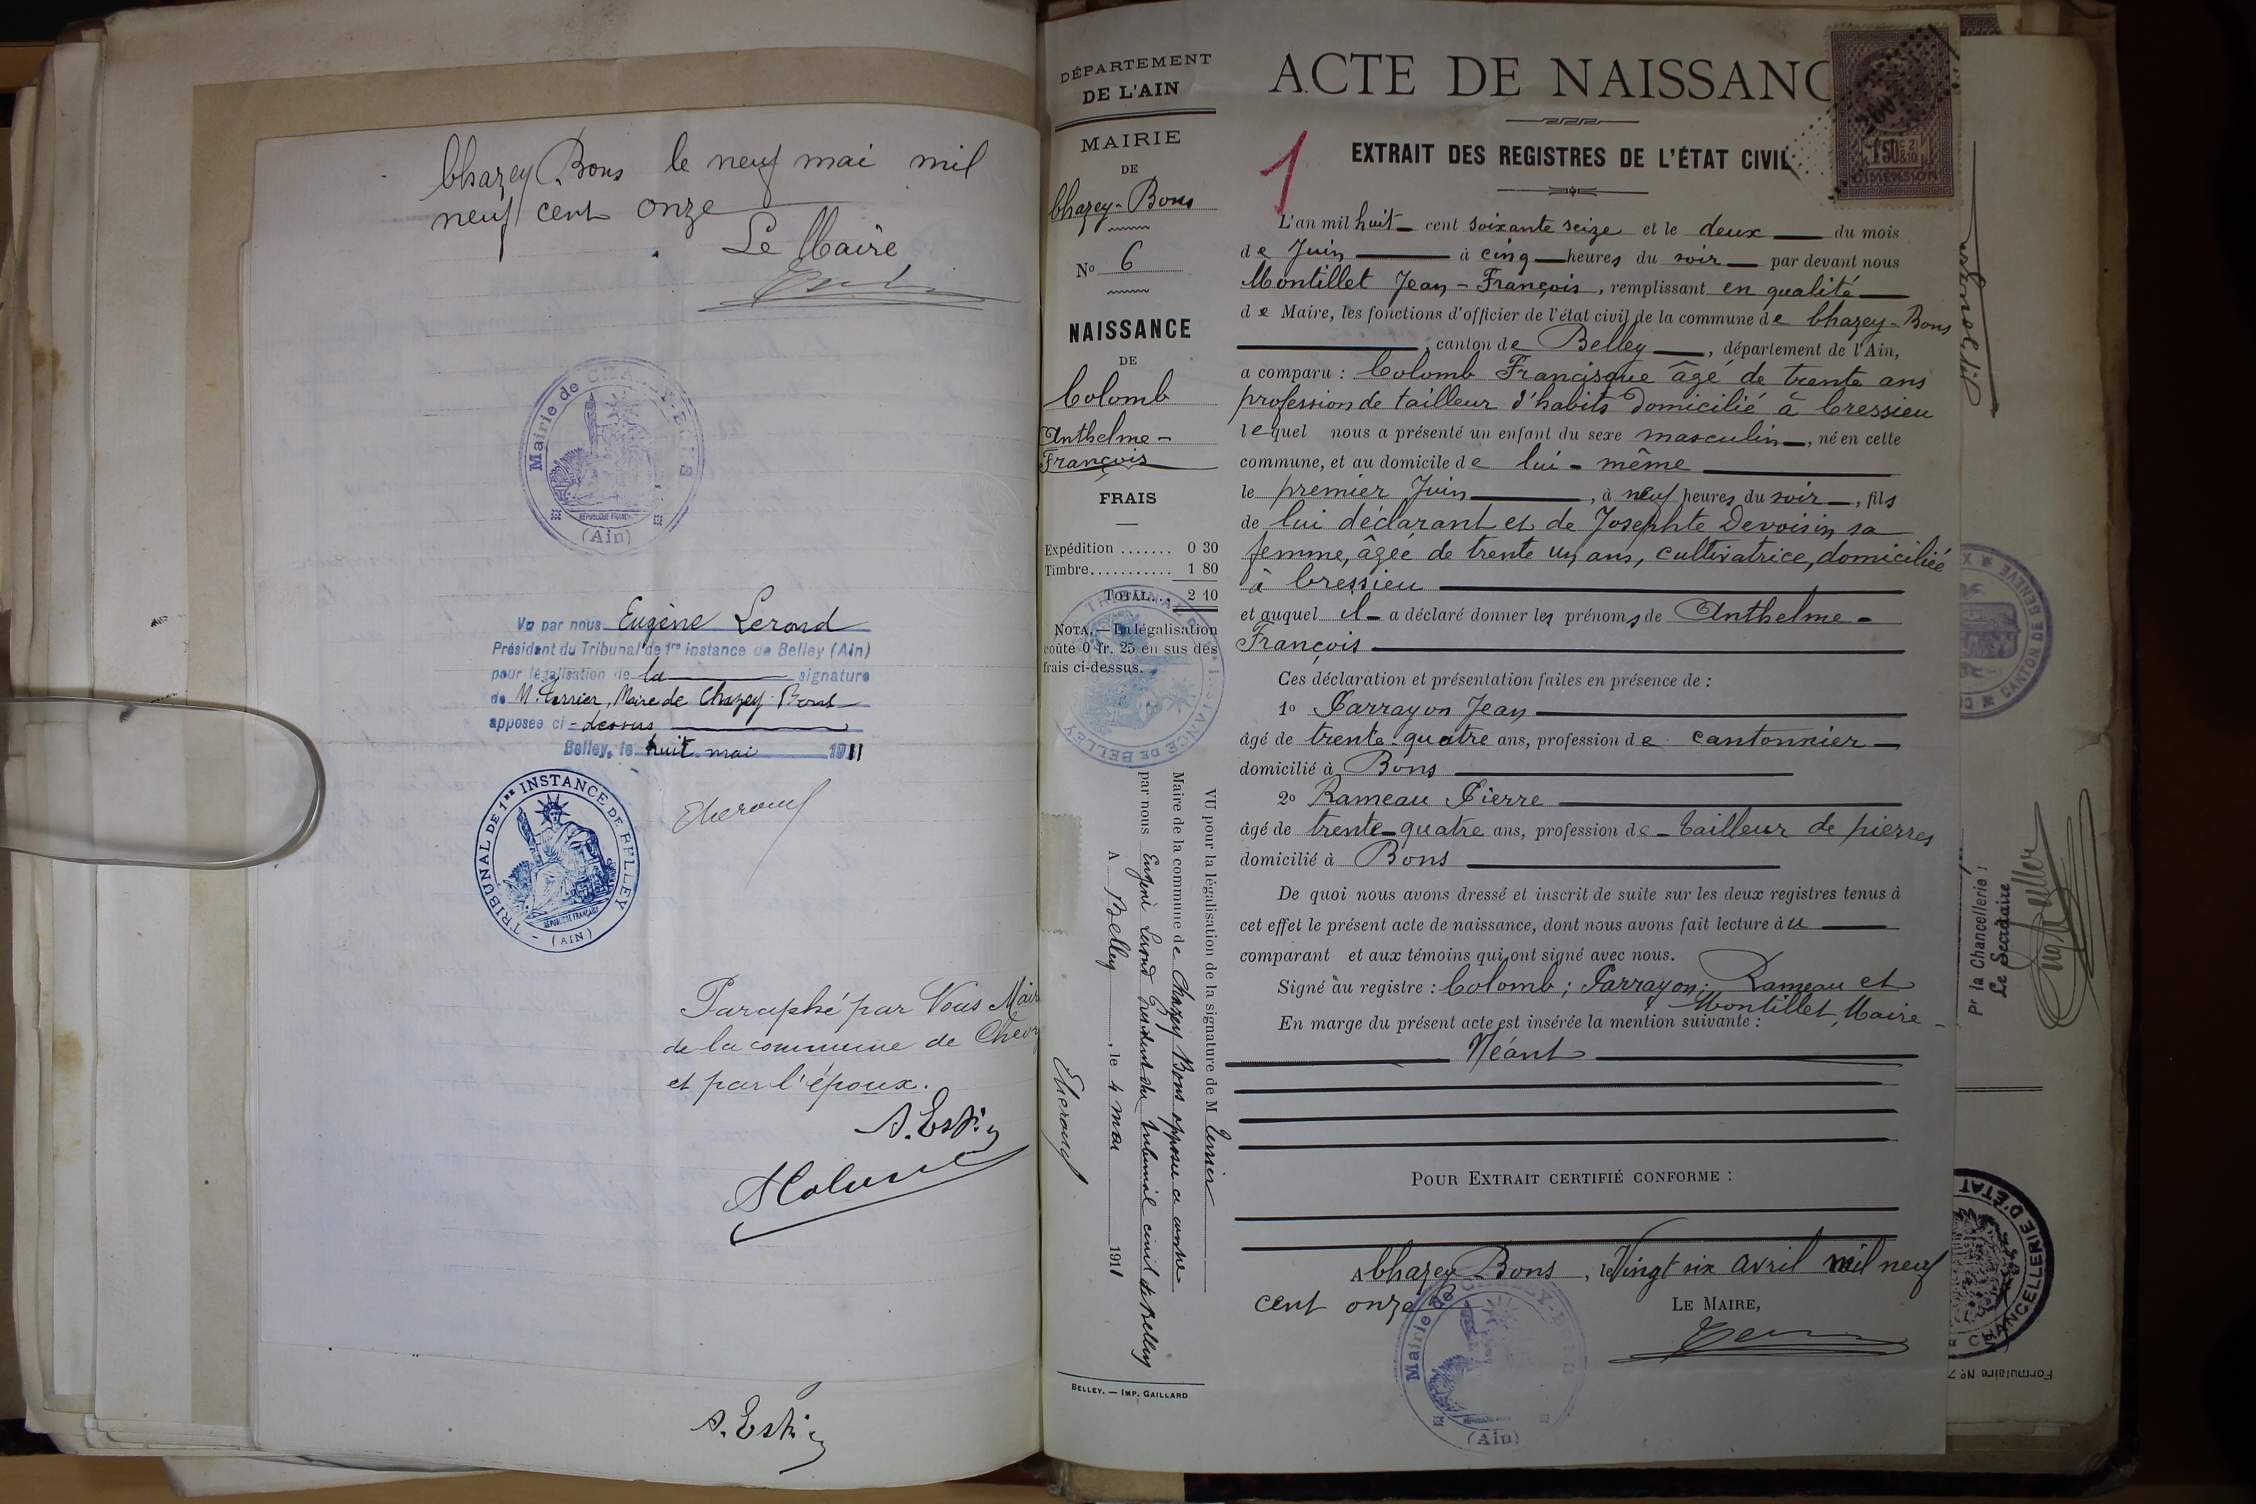 Chazey-Bons le neuf mai mil
neuf cent onze
Le Maire
Mairie de CHAZEY-BONS
RÉPUBLIQUE FRANÇ
(Ain)
Vu par nous Eugène Lerond
Président du Tribunal de 1re instance de Belley (Ain)
pour légalisation de la signature
de M. Tersier, Maire de Chazey-Bons
apposée ci-dessus
Belley, le huit mai 1911
TRIBUNAL DE 1re INSTANCE DE BELLEY
RÉPUBLIQUE FRANÇAISE
(AIN)
Paraphé par Nous Maire
de la commune de Chevry
et par l'époux.
DÉPARTEMENT
DE L'AIN
MAIRIE
DE
Chazey-Bons
No 6
NAISSANCE
DE
Colomb
Anthelme-
François
FRAIS
Expédition ....... 0 30
Timbre........... 1 80
TOTAL... 2 10
NOTA. — La légalisation
coûte 0 fr. 25 en sus des
frais ci-dessus.
TRIBUNAL DE 1re INSTANCE DE BELLEY
VU pour la légalisation de la signature de M Tersier
Maire de la commune de Chazey Bons apposée ci contre
par nous Eugène Lerond Président du tribunal civil de Belley
A Belley, le 4 mai 1911
BELLEY. — IMP. GAILLARD
ACTE DE NAISSANC
1 50
2
&10
DIMENSION
1
EXTRAIT DES REGISTRES DE L'ÉTAT CIVIL
L'an mil huit cent soixante seize et le deux du mois
de Juin à cinq heures du soir par devant nous
Montillet Jean-François, remplissant en qualité
de Maire, les fonctions d'officier de l'état civil de la commune de Chazey-Bons
, canton de Belley, département de l'Ain,
a comparu : Colomb Francisque âgé de trente ans
profession de tailleur d'habits domicilié à Cressieu
lequel nous a présenté un enfant du sexe masculin, né en cette
commune, et au domicile de lui-même
le premier Juin, à neuf heures du soir, fils
de lui déclarant et de Josephte Devoisin sa
femme, âgée de trente un ans, cultivatrice, domiciliée
à Cressieu
et auquel il a déclaré donner les prénoms de Anthelme-
François
Ces déclaration et présentation faites en présence de :
1o Parrayon Jean
âgé de trente-quatre ans, profession de cantonnier
domicilié à Bons
2o Rameau Pierre
âgé de trente-quatre ans, profession de tailleur de pierres
domicilié à Bons
De quoi nous avons dressé et inscrit de suite sur les deux registres tenus à
cet effet le présent acte de naissance, dont nous avons fait lecture au
comparant et aux témoins qui ont signé avec nous.
Signé au registre : Colomb ; Parrayon ; Rameau et
Montillet, Maire
En marge du présent acte est insérée la mention suivante :
Néant
POUR EXTRAIT CERTIFIÉ CONFORME :
A Chazey Bons, le Vingt six avril mil neuf
cent onze
LE MAIRE,
Mairie de CHAZEY-BONS
(Ain)
CANTON DE GENÈVE
Pr la Chancellerie :
Le Secrétaire
CHANCELLERIE D'ÉTAT
Formulaire No 7